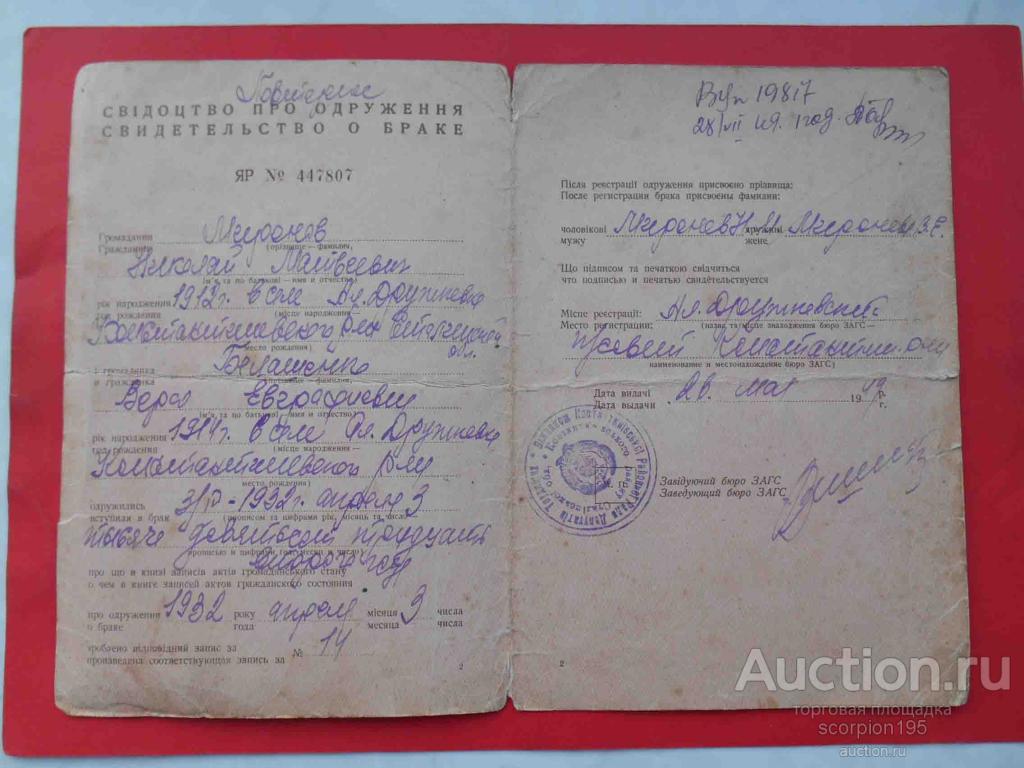 Повторное
СВІДОЦТВО ПРО ОДРУЖЕННЯ
СВИДЕТЕЛЬСТВО О БРАКЕ
ЯР № 447807
Громадянин
Гражданин
Миронов
(прізвище — фамилия,
Николай Матвеевич
ім'я та по батькові — имя и отчество)
рік народження 1912 г. в селе Ал. Дружковка
год рождения (місце народження—
Константиновского р-на Сталинской обл.
место рождения)
і громадянка
и гражданка
Белашенко
(прізвище — фамилия,
Вера
ім'я та по батькові — имя и отчество)
рік народження 1914 г. в селе Ал. Дружковка
год рождения (місце народження—
Константиновского р-на
место рождения)
одружились 3/IV-1932 г. апреля 3
вступили в брак (прописом та цифрами рік, місяць та число)
тысяча девятьсот тридцать
прописью и цифрами год, месяц и число)
второго года
про що в книзі записів актів громадянського стану
о чем в книге записей актов гражданского состояния
про одруження 1932 року апреля місяця 3 числа
о браке года месяца числа
зроблено відповідний запис за
произведена соответствующая запись за № 14
2
19817
28/VII
Після реєстрації одруження присвоєно прізвища:
После регистрации брака присвоены фамилии:
чоловікові Миронов Н.М. дружині Миронова В.Е.
мужу жене
Що підписом та печаткою свідчиться
что подписью и печатью свидетельствуется
Місце реєстрації: Ал. Дружковский
Место регистрации: (назва та місце знаходження бюро ЗАГС —
наименование и местонахождение бюро ЗАГС)
Дата видачі
Дата выдачи 26 мая 1949 р.
г.
М. П.
Завідуючий бюро ЗАГС
Заведующий бюро ЗАГС
2
Auction.ru
торговая площадка
scorpion195
auction.ru